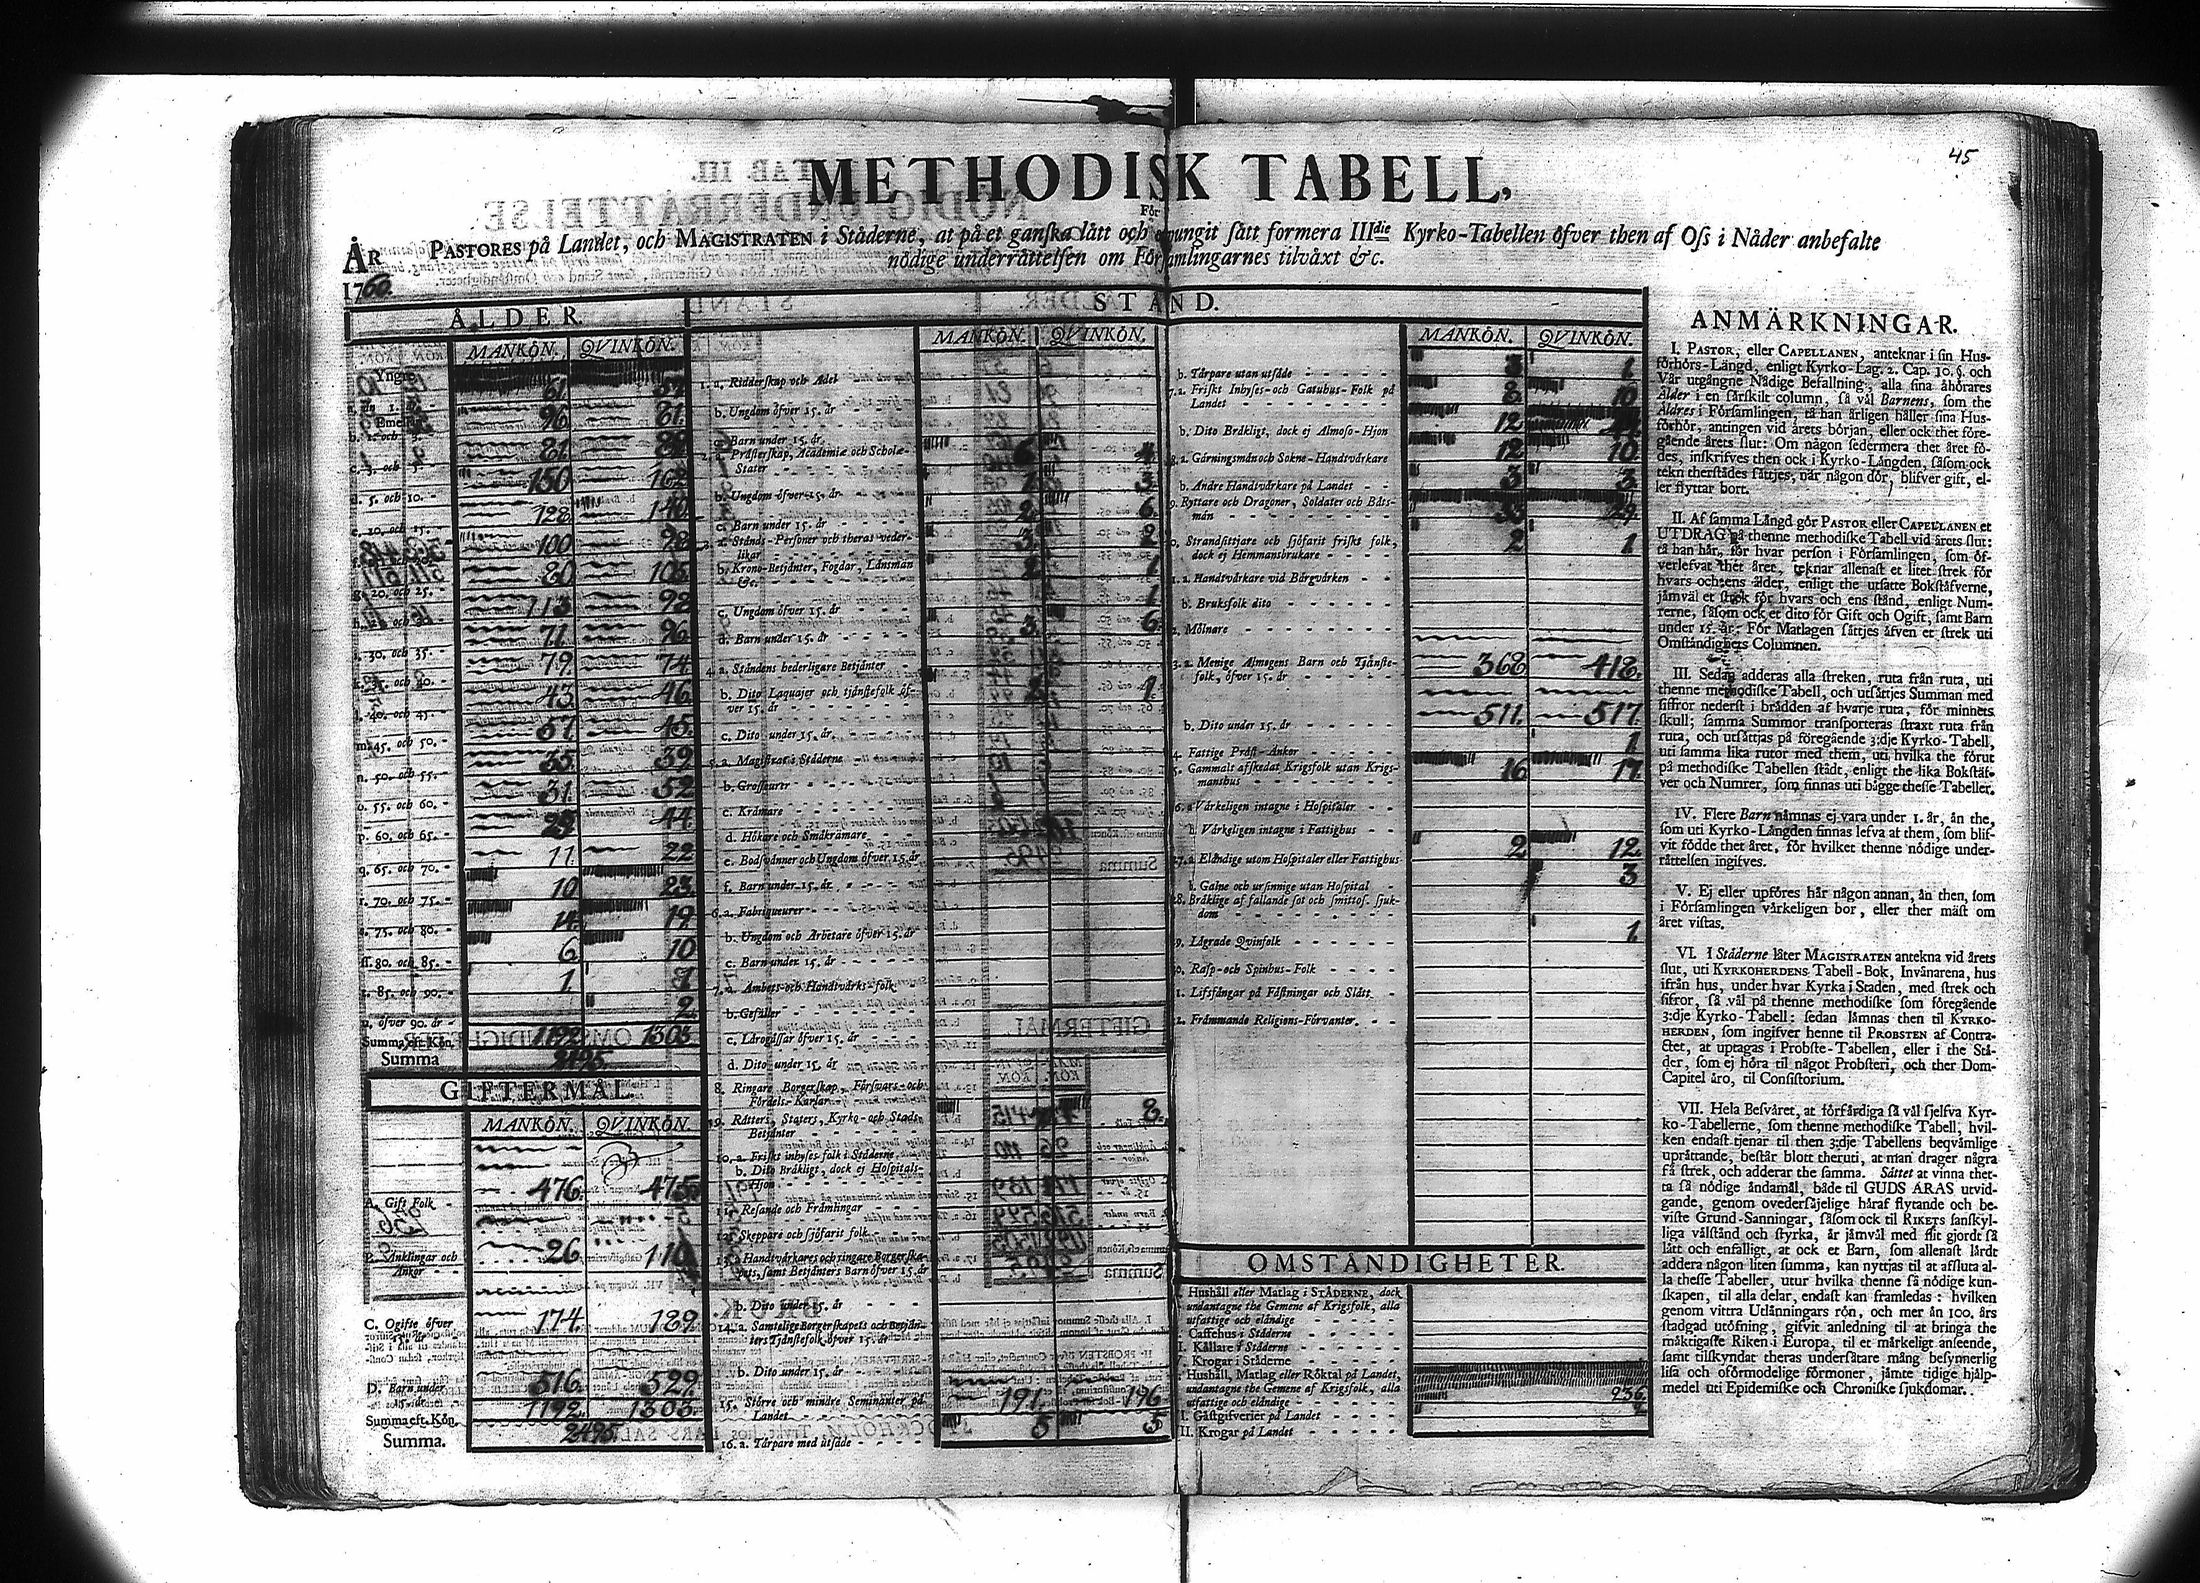 45
METHODISK TABELL,
För
PASTORES på Landet, och MAGISTRATEN i Städerne, at på et ganska lätt och otvungit sätt formera IIIdie Kyrko-Tabellen öfver then af Oss i Nåder anbefalte
nödige underrättelsen om Församlingarnes tilväxt &c.
ÅR
1760.
ÅLDER.
MANKÖN. QVINKÖN.
Yngre
än 1. år
61.
Emellan
b. 1. och 3. 96. 81.
c. 3. och 5. 81.
d. 5. och 10. 150 162
e. 10. och 15. 128. 140.
100 98
g. 20. och 25. 80 105.
113. 98
i. 30. och 35. 71. 96.
79. 74
l. 40. och 45. 43. 46.
m. 45. och 50. 51. 45.
n. 50. och 55. 35. 39.
o. 55. och 60. 31. 52
p. 60. och 65. 44
q. 65. och 70. 11. 22
r. 70. och 75. 10 23.
s. 75. och 80. 14. 19.
ff. 80. och 85. 6. 10
t. 85. och 90. 1.
u. öfver 90. år 2.
Summa eft. Kön. 1192. 1303.
Summa 2495.
GIFTERMÅL.
MANKÖN. QVINKÖN.
A. Gift Folk 476. 475.
B. Änklingar och
Änkor 26. 110.
C. Ogifte öfver
15. år 174. 189.
D. Barn under
15. år 516. 529.
Summa eft. Kön. 1192. 1303.
Summa. 2495.
STÅND.
MANKÖN. QVINKÖN.
1. a. Ridderskap och Adel
b. Ungdom öfver 15. år
c. Barn under 15. år
2. a. Prästerskap, Academiæ och Scholæ-
Stater 6. 4.
b. Ungdom öfver 15. år 3.
c. Barn under 15. år 2. 6.
3. a. Stånds-Personer och theras veder-
likar 3. 2
b. Krono-Betjänter, Fogdar, Länsmän
&c. 2. 1
c. Ungdom öfver 15. år 1
d. Barn under 15. år 3. 6.
4. a. Ståndens hederligare Betjänter
b. Dito Laquajer och tjänstefolk öf-
ver 15. år 1.
c. Dito under 15. år.
5. a. Magistrat i Städerne
b. Grosseurer
c. Krämare
d. Hökare och Småkrämare
e. Bodsvänner och Ungdom öfver 15. år
f. Barn under 15. år
6. a. Fabriqueurer
b. Ungdom och Arbetare öfver 15. år
c. Barn under 15. år
7. a. Ambets- och Handtvärks-folk
b. Gesäller
c. Lärogåssar öfver 15. år
d. Dito under 15. år
8. Ringare Borgerskap, Försvars- och
Fördels-Karlar
9. Rätters, Staters, Kyrko- och Stads-
Betjänter 8.
10. a. Friskt inhyses-folk i Städerne
b. Dito Bräkligt, dock ej Hospitals-
Hjon
11. Resande och Främlingar
12. Skeppare och sjöfarit folk
13. a. Handtvärkares och ringare Borgerska-
pets, samt Betjänters Barn öfver 15. år
b. Dito under 15. år
14. a. Samtelige Borgerskapets och Betjän-
ters Tjänstefolk öfver 15. år
b. Dito under 15. år
15. Större och mindre Seminanter på
Landet 191. 196
16. a. Torpare med utsäde 5 5
MANKÖN. QVINKÖN.
b. Torpare utan utsäde 3 1
17. a. Friskt Inhyses- och Gatuhus-Folk på
Landet 8. 10
b. Dito Bräkligt, dock ej Almoso-Hjon 12
18. a. Gärningsmän och Sokne-Handtvärkare 12 10
b. Andre Handtvärkare på Landet 3 3
19. Ryttare och Dragoner, Soldater och Båts-
män 29.
20. Strandsittjare och sjöfarit friskt folk,
dock ej Hemmansbrukare 2 1
21. a. Handtvärkare vid Bärgvärken
b. Bruksfolk dito
22. Mölnare
23. a. Menige Almogens Barn och Tjänste-
folk, öfver 15. år 368 418.
b. Dito under 15. år 511. 517.
24. Fattige Präst-Änkor 1
25. Gammalt afskedat Krigsfolk utan Krigs-
manshus 16 17.
26. a. Värkeligen intagne i Hospitaler
b. Värkeligen intagne i Fattighus
27. a. Eländige utom Hospitaler eller Fattighus 2 12.
b. Galne och ursinnige utan Hospital 3
28. Bräklige af fallande sot och smittos. sjuk-
dom
29. Lägrade Qvinfolk 1.
30. Rasp- och Spinhus-Folk
31. Lifsfångar på Fästningar och Slått
32. Främmande Religions-Förvanter.
OMSTÄNDIGHETER.
Hushåll eller Matlag i STÄDERNE, dock
undantagne the Gemene af Krigsfolk, alla
utfattige och eländige
Caffehus i Städerne
Källare i Städerne
Krogar i Städerne
Hushåll, Matlag eller Röktal på Landet,
undantagne the Gemene af Krigsfolk, alla
utfattige och eländige 236.
I. Gästgifverier på Landet
II. Krogar på Landet
ANMÄRKNINGAR.
I. PASTOR, eller CAPELLANEN, anteknar i sin Hus-
förhörs-Längd, enligt Kyrko-Lag. 2. Cap. 10. §. och
Vår utgångne Nådige Befallning, alla sina åhörares
Ålder i en särskilt column, så väl Barnens, som the
Äldres i Församlingen, tå han årligen håller sina Hus-
förhör, antingen vid årets början, eller ock thet före-
gående årets slut: Om någon sedermera thet året fö-
des, inskrifves then ock i Kyrko-Längden, såsom ock
tekn therstädes sättjes, när någon dör, blifver gift, el-
ler flyttar bort.
II. Af samma Längd gör PASTOR eller CAPELLANEN et
UTDRAG på thenne methodiske Tabell vid årets slut:
tå han här, för hvar person i Församlingen, som öf-
verlefvat thet året, teknar allenast et litet strek för
hvars och ens ålder, enligt the utsatte Bokstäfverne,
jämväl et strek för hvars och ens stånd, enligt Num-
rerne, såsom ock et dito för Gift och Ogift, samt Barn
under 15. år. För Matlagen sättjes äfven et strek uti
Omständighets Columnen.
III. Sedan adderas alla streken, ruta från ruta, uti
thenne methodiske Tabell, och utsättjes Summan med
siffror nederst i brädden af hvarje ruta, för minnets
skull; samma Summor transporteras straxt ruta från
ruta, och utsättjas på föregående 3:dje Kyrko-Tabell,
uti samma lika rutor med them, uti hvilka the förut
på methodiske Tabellen stådt, enligt the lika Bokstäf-
ver och Numrer, som finnas uti bägge thesse Tabeller.
IV. Flere Barn nämnas ej vara under 1. år, än the,
som uti Kyrko-Längden finnas lefva at them, som blif-
vit födde thet året, för hvilket thenne nödige under-
rättelsen ingifves.
V. Ej eller upföres här någon annan, än then, som
i Församlingen värkeligen bor, eller ther mäst om
året vistas.
VI. I Städerne låter MAGISTRATEN antekna vid årets
slut, uti KYRKOHERDENS Tabell-Bok, Invånarena, hus
ifrån hus, under hvar Kyrka i Staden, med strek och
sifror, så väl på thenne methodiske som föregående
3:dje Kyrko-Tabell: sedan lämnas then til KYRKO-
HERDEN, som ingifver henne til PROBSTEN af Contra-
ctet, at uptagas i Probste-Tabellen, eller i the Stä-
der, som ej höra til något Probsteri, och ther Dom-
Capitel äro, til Consistorium.
VII. Hela Besväret, at förfärdiga så väl sjelfva Kyr-
ko-Tabellerne, som thenne methodiske Tabell, hvil-
ken endast tjenar til then 3:dje Tabellens beqvämlige
uprättande, består blott theruti, at man drager några
få strek, och adderar the samma. Sättet at vinna thet-
ta så nödige ändamål, både til GUDS ÄRAS utvid-
gande, genom ovedersäjelige häraf flytande och be-
viste Grund-Sanningar, såsom ock til RIKETS sanskyl-
liga välstånd och styrka, är jämväl med flit gjordt så
lätt och enfalligt, at ock et Barn, som allenast lärdt
addera någon liten summa, kan nyttjas til at afsluta al-
la thesse Tabeller, utur hvilka thenne så nödige kun-
skapen, til alla delar, endast kan framledas: hvilken
genom vittra Utlänningars rön, och mer än 100. års
stadgad utöfning, gifvit anledning til at bringa the
mäktigaste Riken i Europa, til et märkeligt anseende,
samt tilskyndat theras undersåtare mång besynnerlig
lisa och oförmodelige förmoner, jämte tidige hjälp-
medel uti Epidemiske och Chroniske sjukdomar.